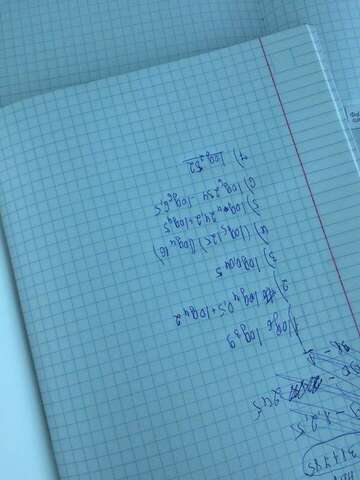 317785
9 - 1,2,5
90 - 245
98 -
1) log₆ log₃9
2) log₄0,5 + log₄2
3) log₀,₀₄5
4) (log₅125) (log₄16)
5) 24,2 + log 5
6) log₆234 - log₆6,5
7) log₂52